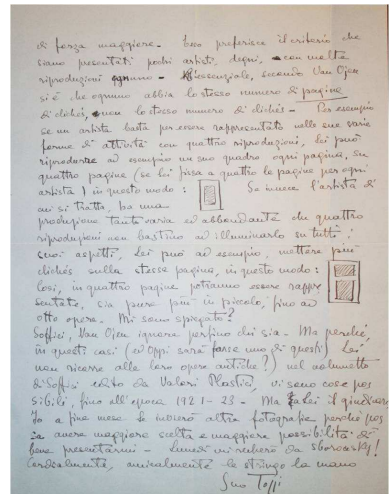 di forza maggiore. Loro preferisce il criterio che
siano presentati pochi artisti, degni, con molte
riproduzioni ognuno - l'essenziale, secondo Van Ojen
si è che ognuno abbia lo stesso numero di pagine
di clichés, non lo stesso numero di clichés - Per esempio
se un artista basta per essere rappresentato nelle sue varie
forme di attività con quattro riproduzioni, lei può
riprodurre ad esempio un suo quadro ogni pagina, su
quattro pagine (se lei fissa a quattro le pagine per ogni
artista) in questo modo: Se invece l'artista di
cui si tratta, ha una
produzione tanto varia ed abbondante che quattro
riproduzioni non bastino ad illuminarlo su tutti i
suoi aspetti, Lei può ad esempio, mettere più
clichés sulla stessa pagina, in questo modo:
Così, in quattro pagine potranno essere rappre
sentate, sia pure più in piccolo, fino ad
otto opere. Mi sono spiegato?
Soffici, Van Ojen ignora perfino chi sia. Ma perché,
in questi casi (ed Oppi sarà forse uno di questi) Lei
non ricorre alle loro opere antiche? nel volumetto
di Soffici edito da Valori Plastici, vi sono cose pos
sibili, fino all'epoca 1921-23 - Ma Lei il giudicare
Io a fine mese le invierò altre fotografie perché pos
sa avere maggiore scelta e maggiore possibilità di
bene presentarmi - Lunedì mi recherò da
Cordialmente, amicalmente le stringo la mano
Suo